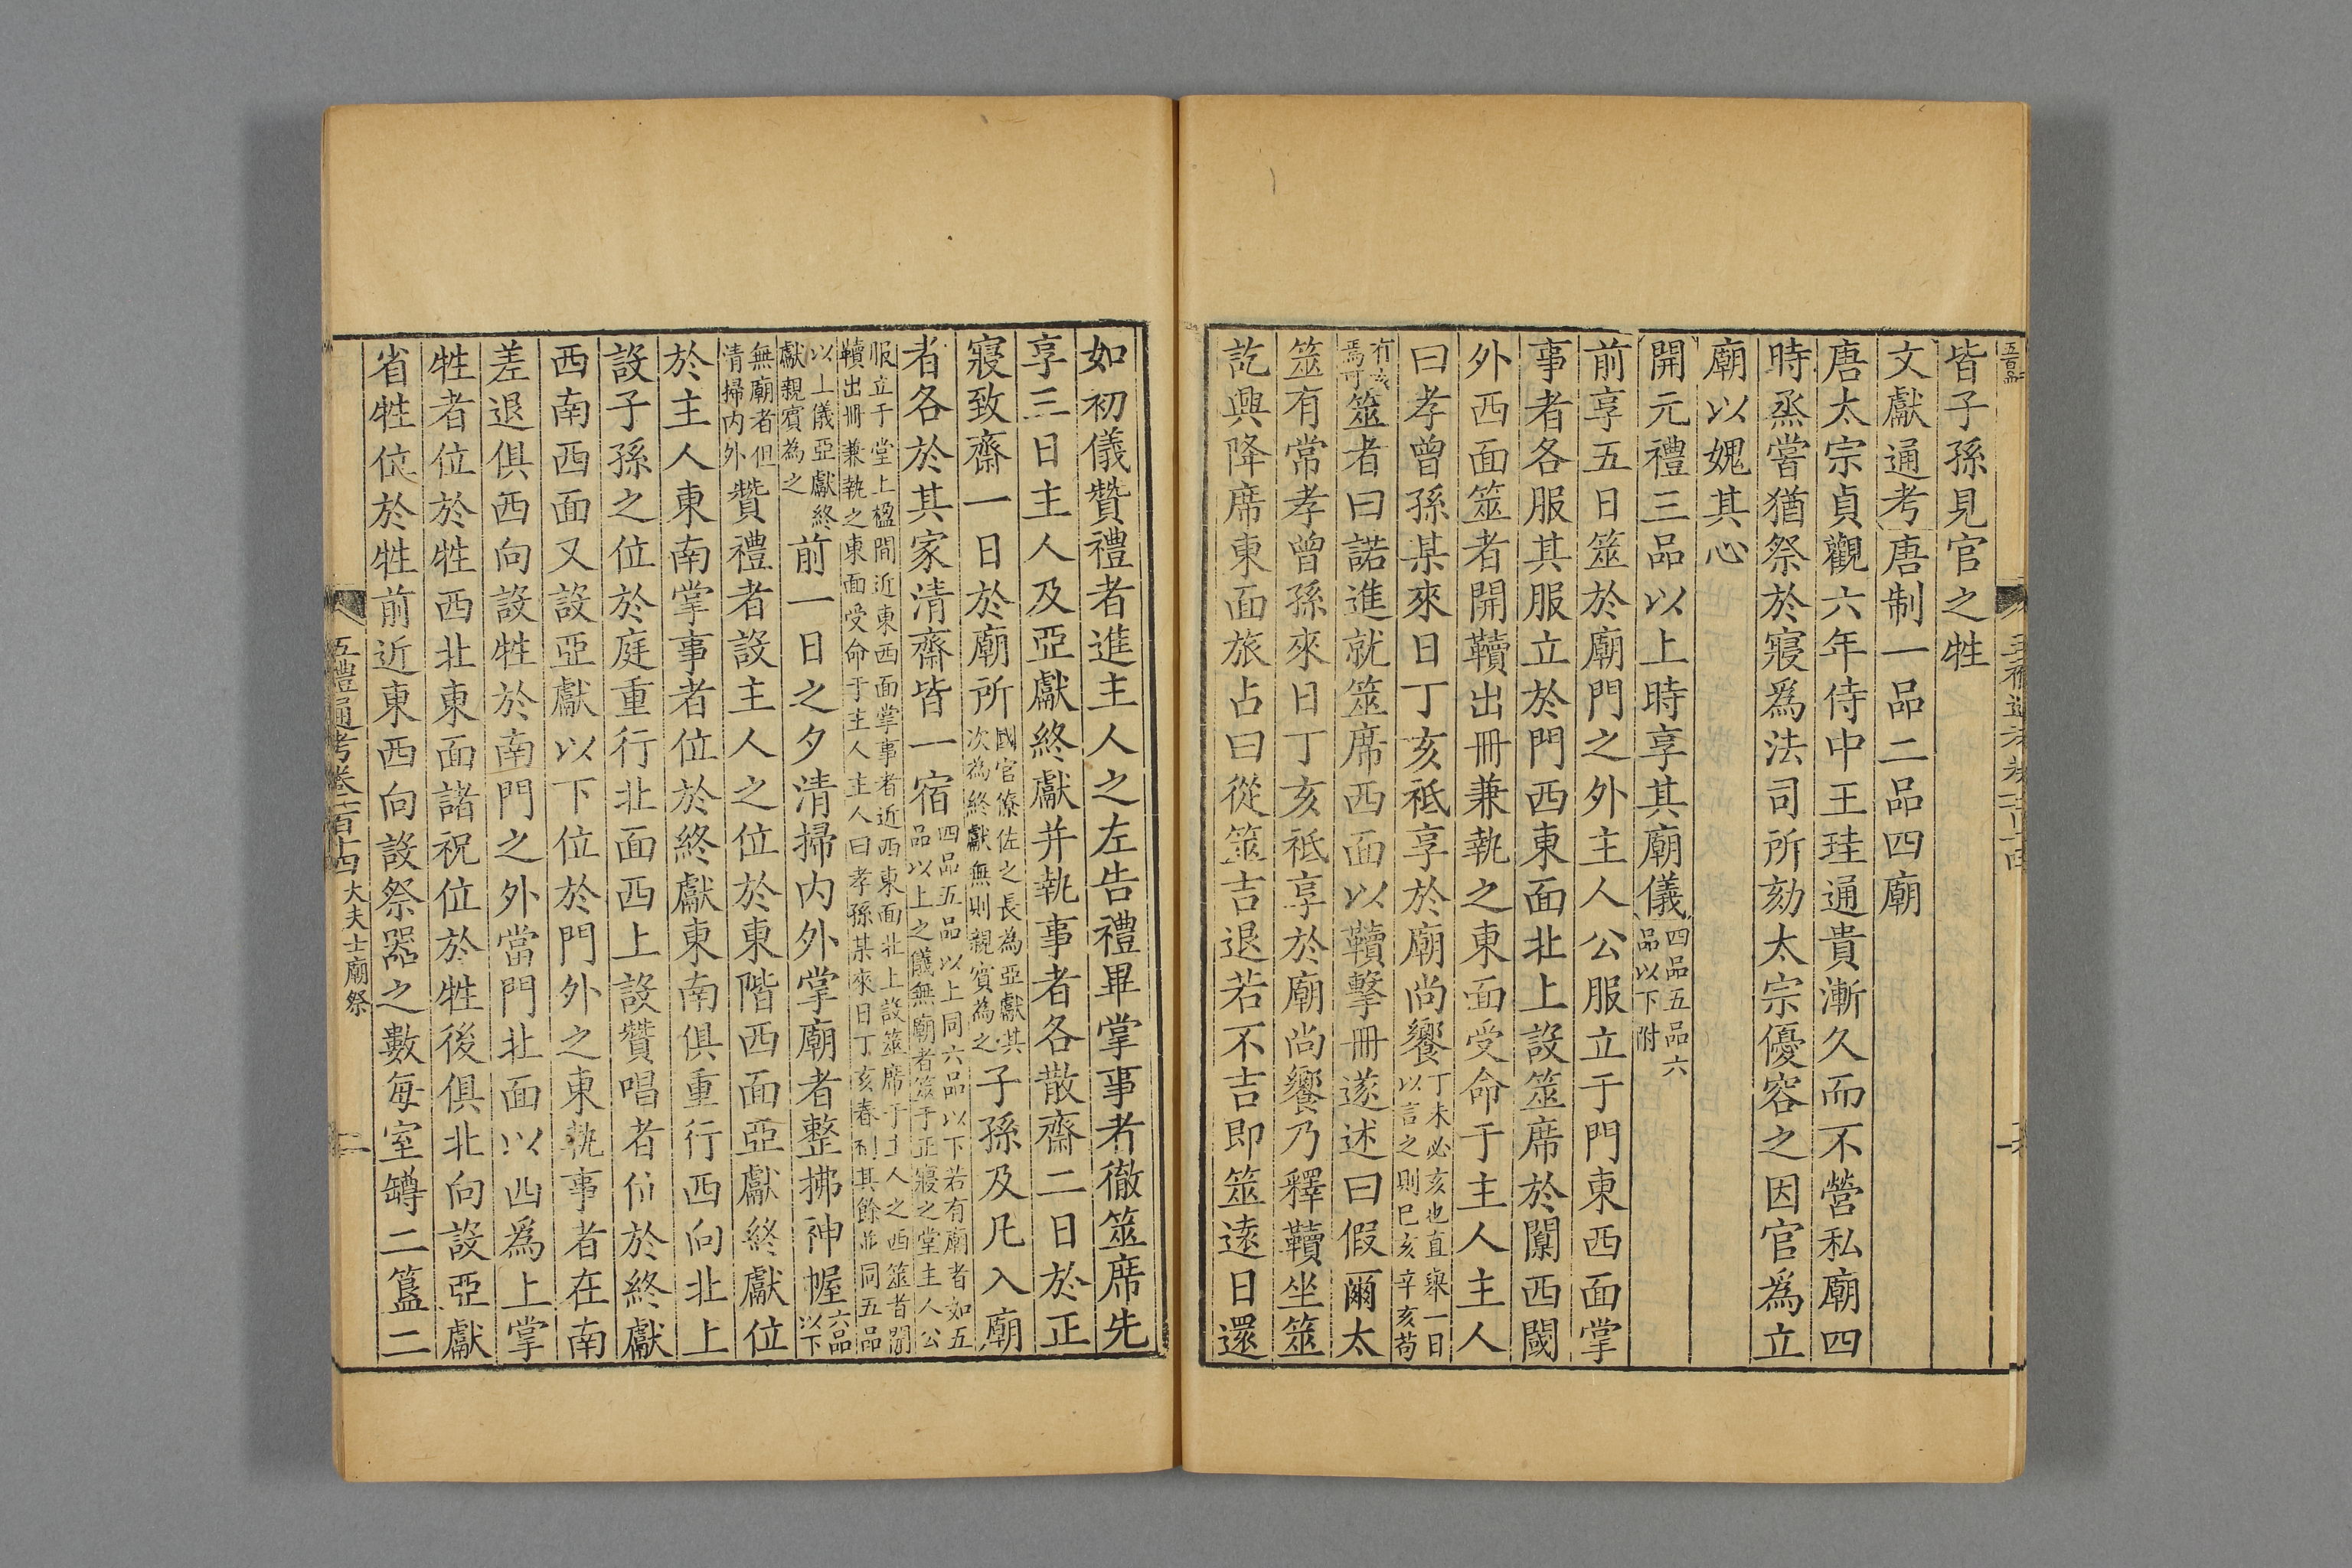 皆子孫見官之牲
文獻通考唐制一品二品四廟
唐太宗貞觀六年侍中王珪通貴漸久而不營私廟四
時烝嘗猶祭於寢爲法司所劾太宗優容之因官爲立
廟以媿其心
開元禮三品以上時享其廟儀四品五品六品以下附
前享五日筮於廟門之外主人公服立于門東西面掌
事者各服其服立於門西東面北上設筮席於闑西閾
外西面筮者開韇出冊兼執之東面受命于主人主人
曰孝曾孫某來日丁亥祗享於廟尚饗丁未必亥也直舉一日以言之則巳亥辛亥苟
有亥焉可筮者曰諾進就筮席西面以韇擊冊遂述曰假爾太
筮有常孝曾孫來日丁亥祗享於廟尚饗乃釋韇坐筮
訖興降席東面旅占曰從筮吉退若不吉即筮遠日還
如初儀贊禮者進主人之左告禮畢掌事者徹筮席先
享三日主人及亞獻終獻并執事者各散齋二日於正
寢致齋一日於廟所國官僚佐之長為亞獻其次為終獻無則親賓為之子孫及凡入廟
者各於其家清齋皆一宿四品五品以上同六品以下若有廟者如五品以上之儀無廟者筮于正寢之堂主人公
服立于堂上楹間近東西面掌事者近西東面北上設筮席于主人之西筮者開韇出冊兼執之東面受命于主人主人曰孝孫某來日丁亥春祠其餘並同五品
以上儀亞獻終獻親賓為之前一日之夕清掃内外掌廟者整拂神幄六品以下
無廟者但清掃内外贊禮者設主人之位於東階西面亞獻終獻位
於主人東南掌事者位於終獻東南俱重行西向北上
設子孫之位於庭重行北面西上設贊唱者位於終獻
西南西面又設亞獻以下位於門外之東執事者在南
差退俱西向設牲於南門之外當門北面以西爲上掌
牲者位於牲西北東面諸祝位於牲後俱北向設亞獻
省牲位於牲前近東西向設祭器之數每室罇二簋二
五禮通考卷一百十四 大夫士廟祭